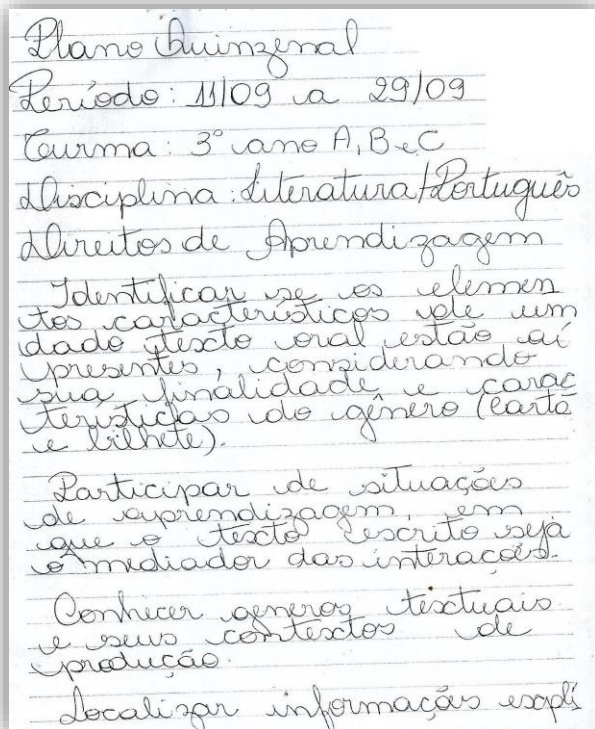 Plano Quinzenal
Período: 11/09 a 29/09
Turma: 3º ano A, B e C
Disciplina: Literatura/Português
Direitos de Aprendizagem
Identificar se os elemen
tos característicos de um
dado texto oral estão aí
presentes, considerando
sua finalidade e carac
terísticas do gênero (carta
e bilhete).
Participar de situações
de aprendizagem, em
que o texto escrito seja
o mediador das interações.
Conhecer gêneros textuais
e seus contextos de
produção.
Localizar informações explí